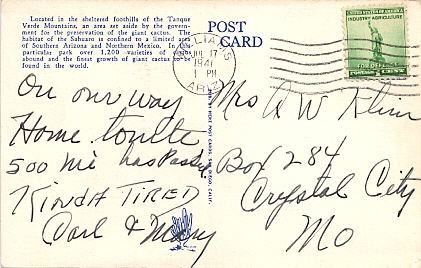 Located in the sheltered foothills of the Tanque
Verde Mountains, an area set aside by the govern-
ment for the preservation of the giant cactus. The
habitat of the Sahuaro is confined to a limited area
of Southern Arizona and Northern Mexico. In this
particular park over 1,200 varieties of cactus
abound and the finest growth of giant cactus to be
found in the world.
POST
CARD
WILLIAMS
JUL 17
1941
1 PM
ARIZ.
UNITED STATES OF AMERICA
INDUSTRY AGRICULTURE
FOR DEFENSE
POSTAGE 1 CENT
On our way
Home
500 mi has Passed
KINDA TIRED
Carl & Mary
Mrs A W Klein
Box 284
Crystal City
Mo